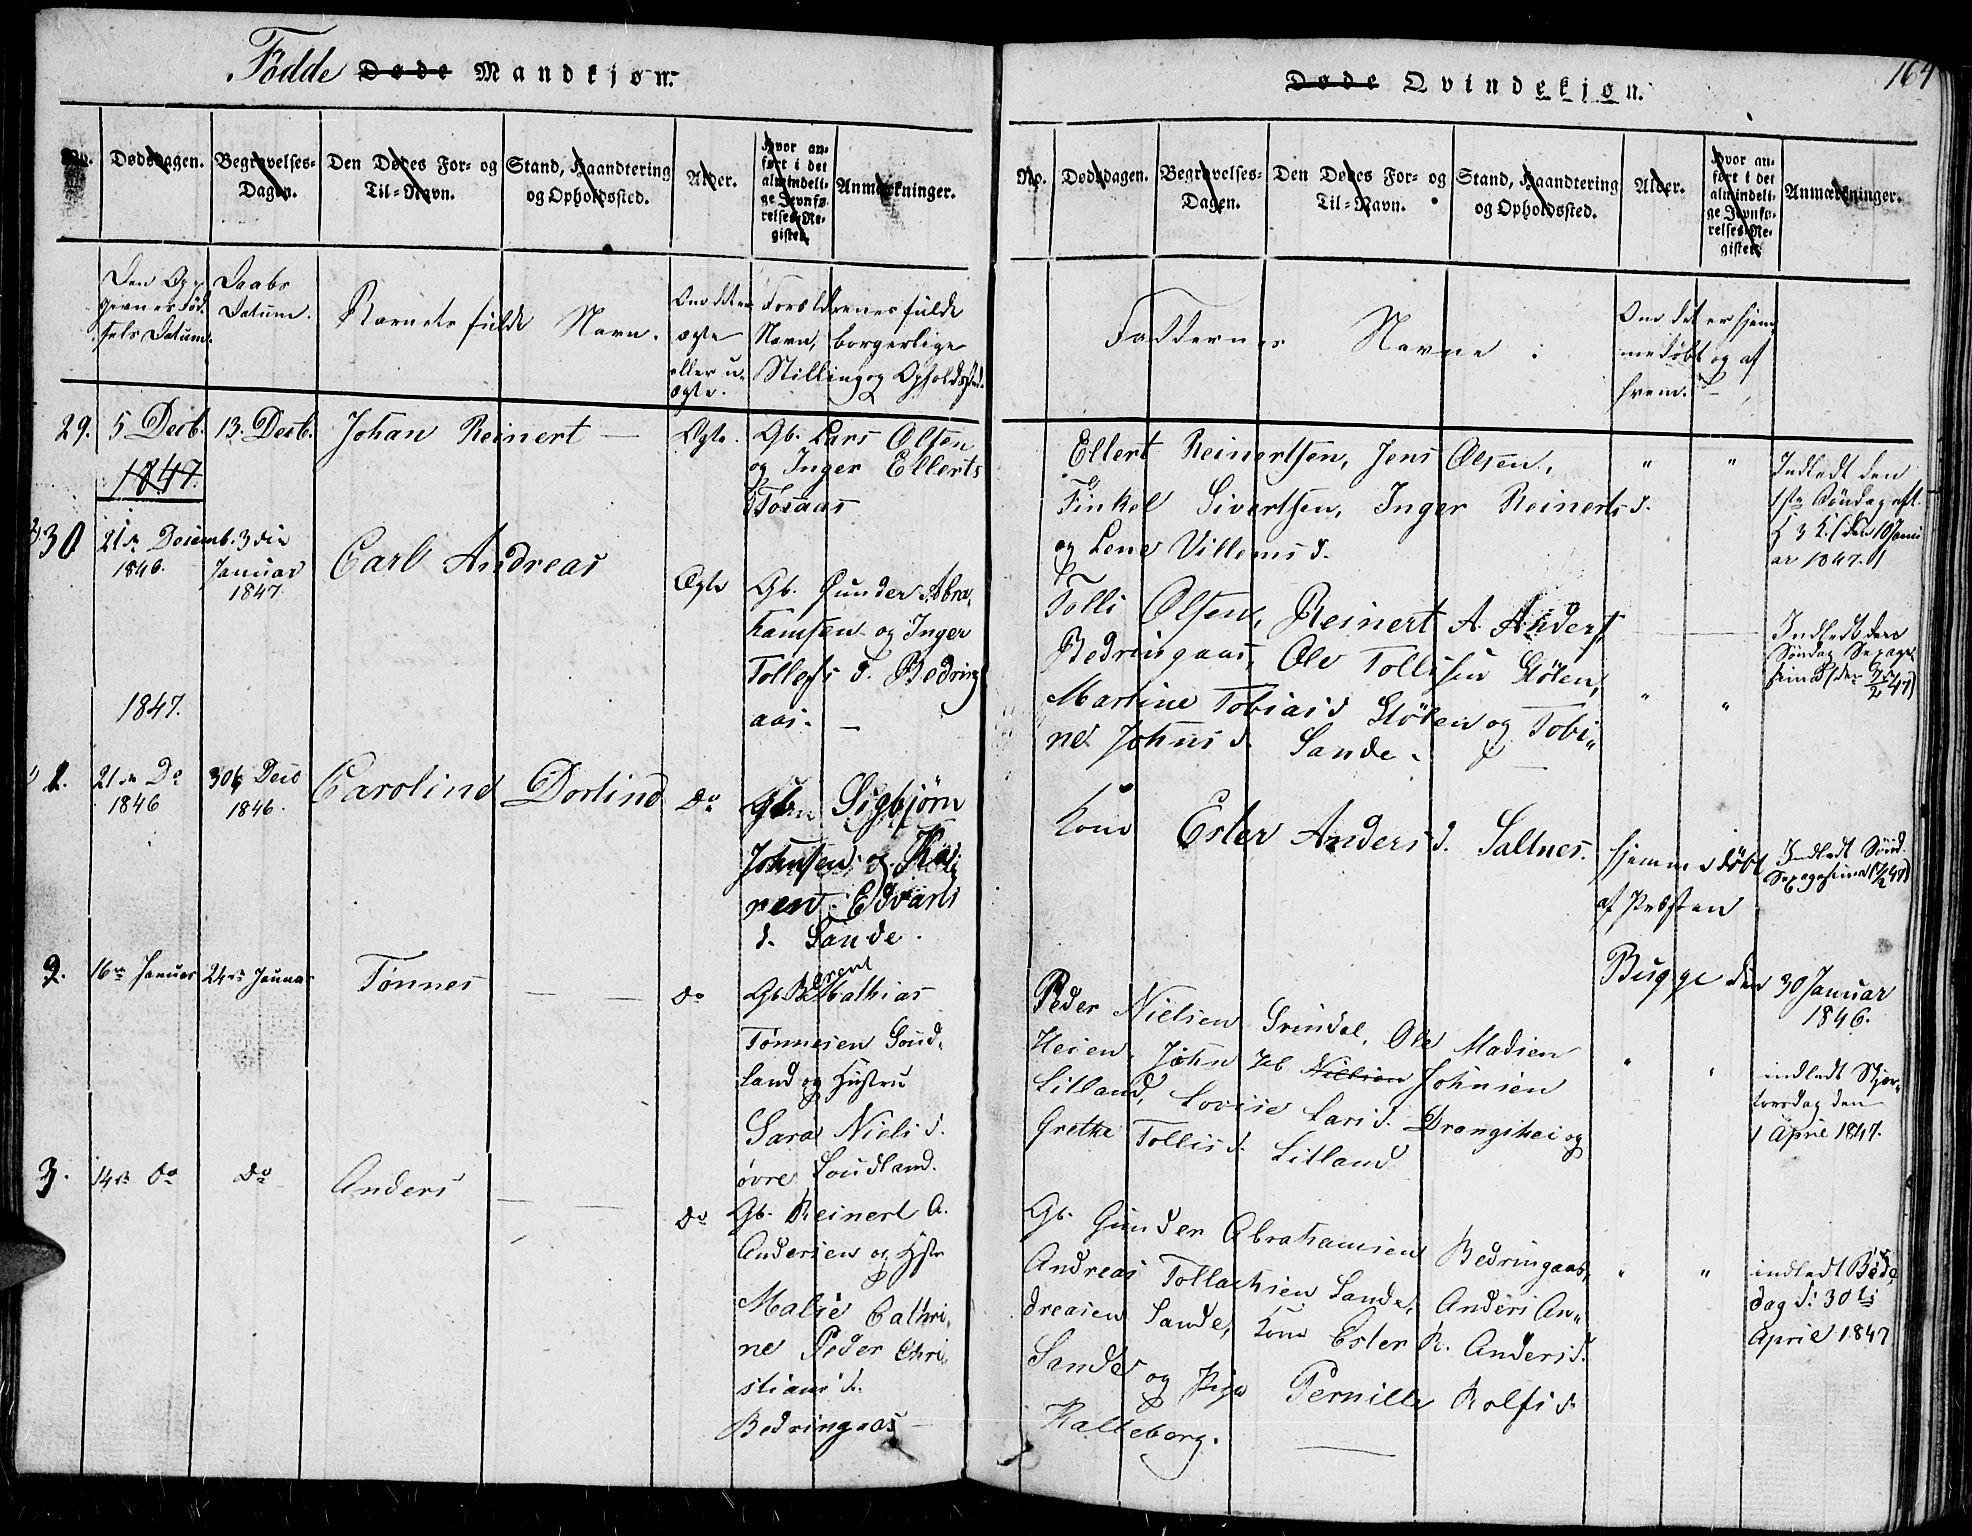 Fødde Døde Mandkjøn.
No.
Dødsdagen.
Begravelses-
Dagen.
Den Dødes For- og
Til-Navn.
Stand, Haandtering
og Opholdssted.
Alder.
Hvor an-
ført i det
almindeli-
ge Jevnfø-
relses-Re-
gister.
Anmærkninger.
Den Op-
givnes Fød-
sels Datum.
Daabs
Datum.
Barnets fulde Navn.
Om det er
ægte
eller u-
ægte.
Forældrenes fulde
Navn, borgerlige
Stilling og Opholdssted.
29.
5 Decb.
13. Decb.
Johan Reinert —
Ægte.
Gb. Lars Olsen
og Inger Ellerts
Tosaas
1847.
30
21de Decemb.
1846.
3die
Januar
1847
Carl Andreas
Ægte
Gb. Gunder Abra-
hamsen og Inger
Tollefs d. Bedrings
aas. —
1847.
1.
21de Do
1846
30te Decb
1846.
Caroline Dorline
Do
Gbm Sigbjørn
Johnsen og Ka-
ren Edvards
d. Sande.
2.
16de Januar
24de Januar
Tønnes
Do
Gb. Bærent
Mathias
Tønnesen Soud-
land og Hustru
Sara Niels d.
øvre Soudland.
3.
14de Do
Do
Anders
Do
Gb. Reinert A.
Andersen og Hstr
Malie Cathri-
ne Peder Chri-
stians d.
Bedringaas
Døde Qvindekjøn.
164
No.
Dødsdagen.
Begravelses-
Dagen.
Den Dødes For- og
Til-Navn.
Stand, Haandtering
og Opholdssted.
Alder.
Hvor an-
ført i det
almindeli-
ge Jevnfø-
relses-Re-
gister.
Anmærkninger.
Faddernes Navne:
Om det er hjem-
medøbt og af
hvem.
Ellert Reinertsen, Jens Olsen,
Finkel Sivertsen, Inger Reinerts d.
og Lene Villums d.
" "
Indledt den
1ste Søndag eft.
H 3 K. (den 10 Janu
ar 1847.)
Tolli Olsen, Reinert A. Anders
Bedringaas, Ole Tollisen Sløten,
Martine Tobias d Sløten og Tobi-
ne Johns d. Sande.
" "
Indledt den
Søndag Sexage-
sima
Kone Ester Anders d. Saltnes.
hjemmedøbt
af Præsten
Bugge den 30 Januar
1846.
Indledt Sønd.
Sexagesima
Peder Nielsen Svindal, Ole Madsen
Heien, John Jcb Nielsen Johnsen
Litland, Lovise Lars d. Drangshei og
Grethe Tollis d. Litland
" "
indledt Skjær-
torsdag den
1 April 1847.
Gb. Gunder Abrahamsen Bedringaas,
Andreas Tollachsen Sande, Anders An-
dreasen Sande, Kone Ester R. Anders d.
Sande og Pige Pernille Rolfs d.
Kalleborg.
" "
indledt Bede
dag d. 30te
April 1847